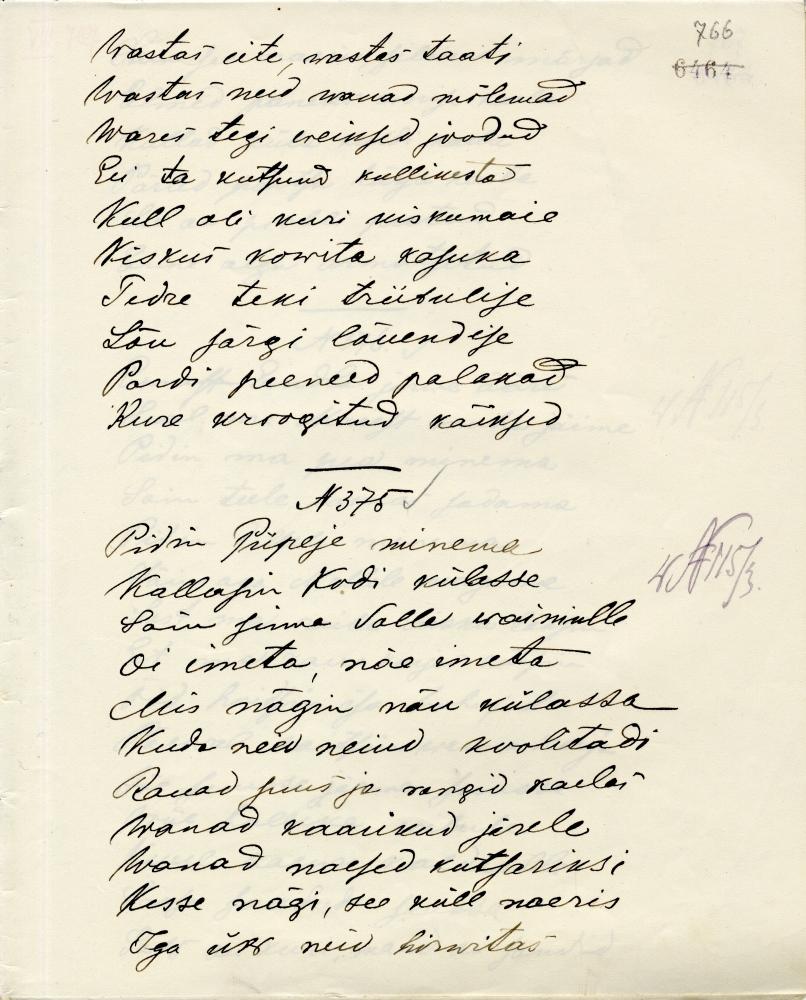 766
6464
Wastas eite, wastas taati
Wastas neid wanad mõlemad
Wares tegi weiksed joodud
Ei ta kutsund kullikesta
Kull oli kuri kiskumaie
Kiskus kowita kasuka
Tedre teki triibulise
Lõu särgi lõuendise
Pardi peened palakad
Kure kroogitud käiksed
N 375
Pidin Piipeje minema
Kallasin Kodi külasse
Sain sinna Salla wainiulle
Oi imeta, näe imeta
Mis nägin näu külassa
Kuda neid neiud koolitadi
Rauad suus ja rangid kaelas
Wanad kaarikud järele
Wanad naesed kutsariksi
Kesse nägi, see küll naeris
Iga üks neid hirwitas